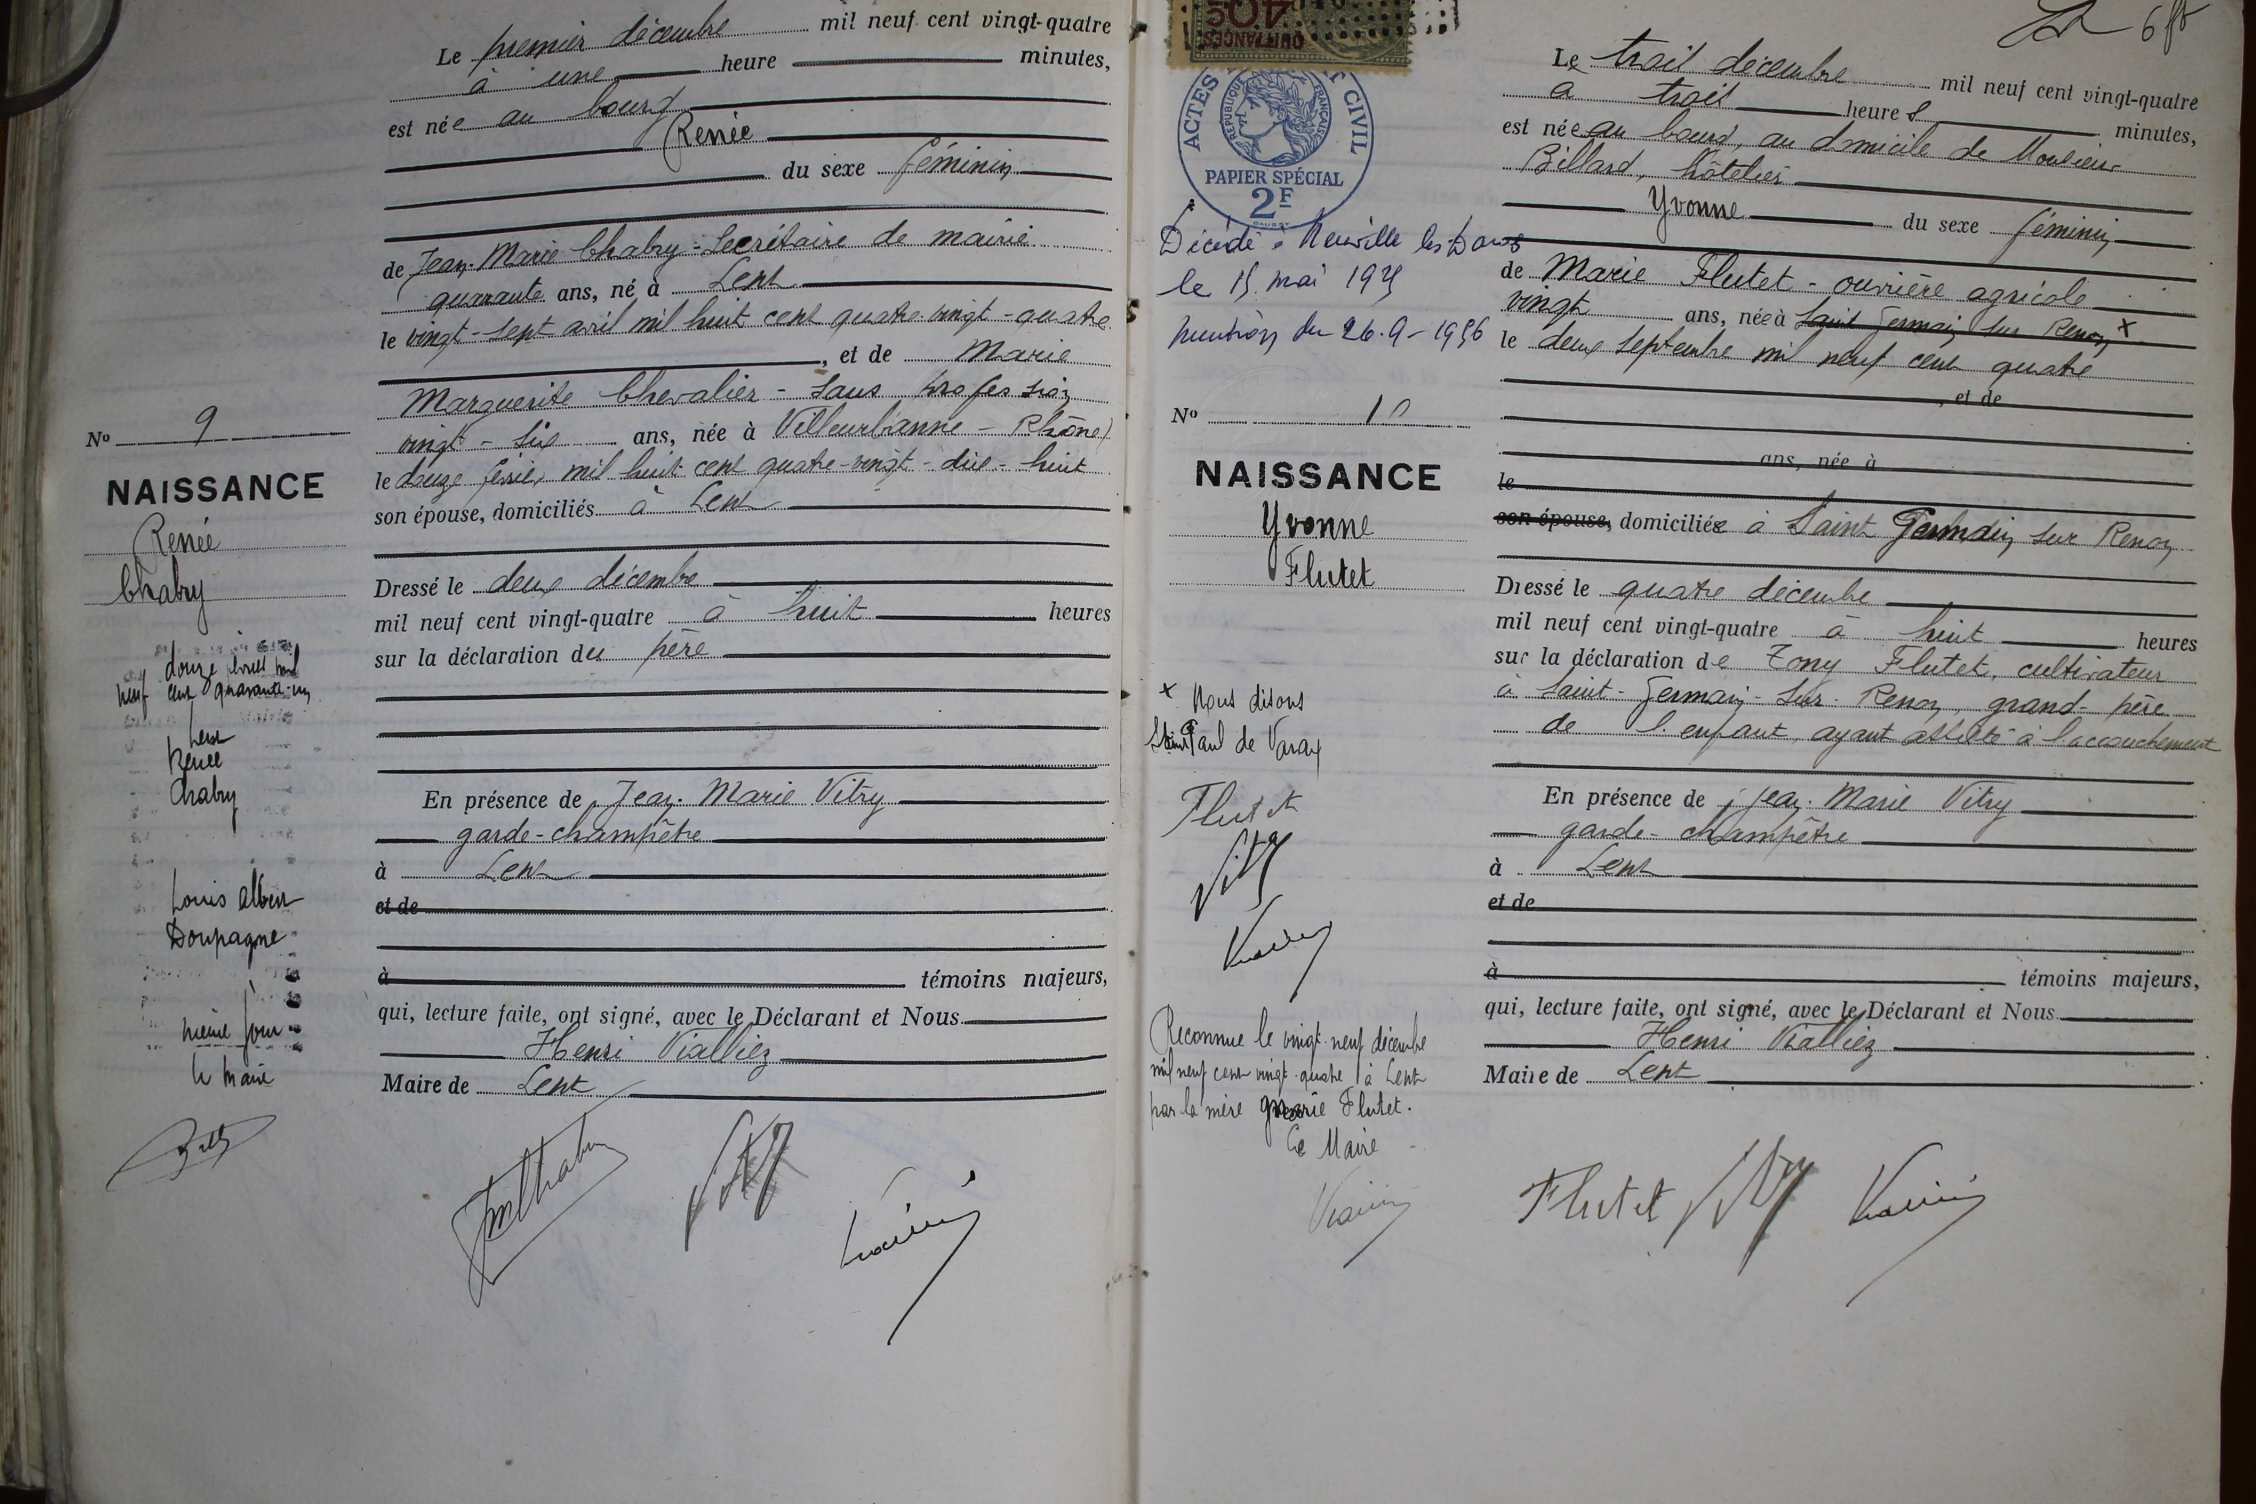 Le premier décembre mil neuf cent vingt-quatre
à une heure minutes,
est née au bourg
Renée
du sexe féminin
de Jean-Marie Chabry - Secrétaire de mairie
quarante ans, né à Lent
le vingt-sept avril mil huit cent quatre-vingt-quatre
, et de Marie
Marguerite Chevalier - sans profession
vingt-six ans, née à Villeurbanne - Rhône)
le douze février mil huit cent quatre-vingt-dix-huit
son épouse, domiciliés à Lent
Dressé le deux décembre
mil neuf cent vingt-quatre à huit heures
sur la déclaration du père
En présence de Jean-Marie Vitry
garde-champêtre
à Lent
et de
à témoins majeurs,
qui, lecture faite, ont signé, avec le Déclarant et Nous
Henri Vialliez
Maire de Lent
No 9
NAISSANCE
Renée
Chabry
douze mil
neuf cent quarante-un
Lent
Renée
Chabry
Louis Albert
Doupagne
même jour
le maire
Vitry
40c
QUITTANCES
ACTES CIVIL
REPUBLIQUE FRANÇAISE
PAPIER SPÉCIAL
2F
Décédé à Neuville les Dames
le 15 mai 1925
mention du 26-9-1956
No 10
NAISSANCE
Yvonne
Flutet
x Nous disons
Saint Paul de Varax
Flutet
Vitry
Reconnue le vingt-neuf décembre
mil neuf cent vingt-quatre à Lent
par la mère Marie Flutet.
Le Maire
Le trois décembre mil neuf cent vingt-quatre
à trois heures minutes,
est née au bourg, au domicile de Monsieur
Billard, hôtelier
Yvonne du sexe féminin
de Marie Flutet - ouvrière agricole
vingt ans, née à Saint Germain sur Renon x
le deux septembre mil neuf cent quatre
, et de
ans, née à
le
son épouse, domiciliée à Saint Germain sur Renon
Dressé le quatre décembre
mil neuf cent vingt-quatre à huit heures
sur la déclaration de Tony Flutet, cultivateur
à Saint-Germain-sur-Renon, grand-père
de l'enfant, ayant assisté à l'accouchement
En présence de Jean-Marie Vitry
garde-champêtre
à Lent
et de
à témoins majeurs,
qui, lecture faite, ont signé, avec le Déclarant et Nous
Henri Vialliez
Maire de Lent
Flutet Vitry